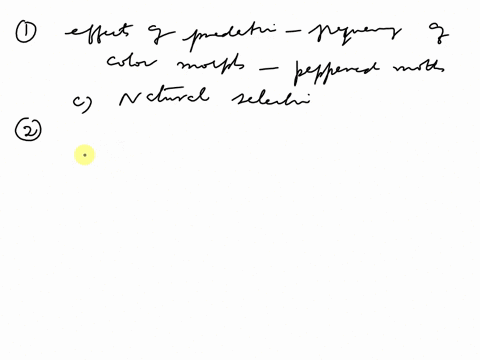 ① effects of predation – frequency of
color morphs – peppered moths
c) Natural selection
②